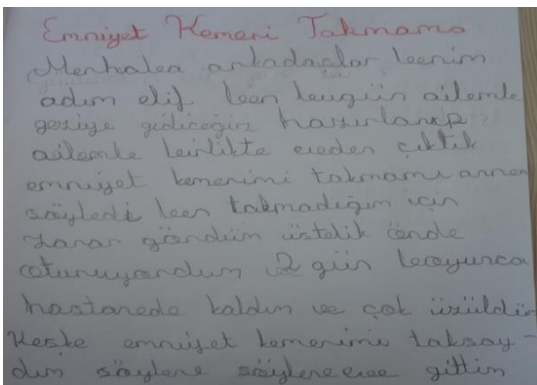 Emniyet Kemeri Takmama
Merhaba arkadaşlar benim
adım elif. ben bugün ailemle
geziye gidiceğiz hazırlanıp
ailemle birlikte evden çıktık
emniyet kemerimi takmamı annem
söyledi ben takmadığım için
zarar gördüm üstelik önde
oturuyordum 2 gün boyunca
hastanede kaldım ve çok üzüldüm
Keske emniyet kemerimi taksay-
dım söylene söylene eve gittim